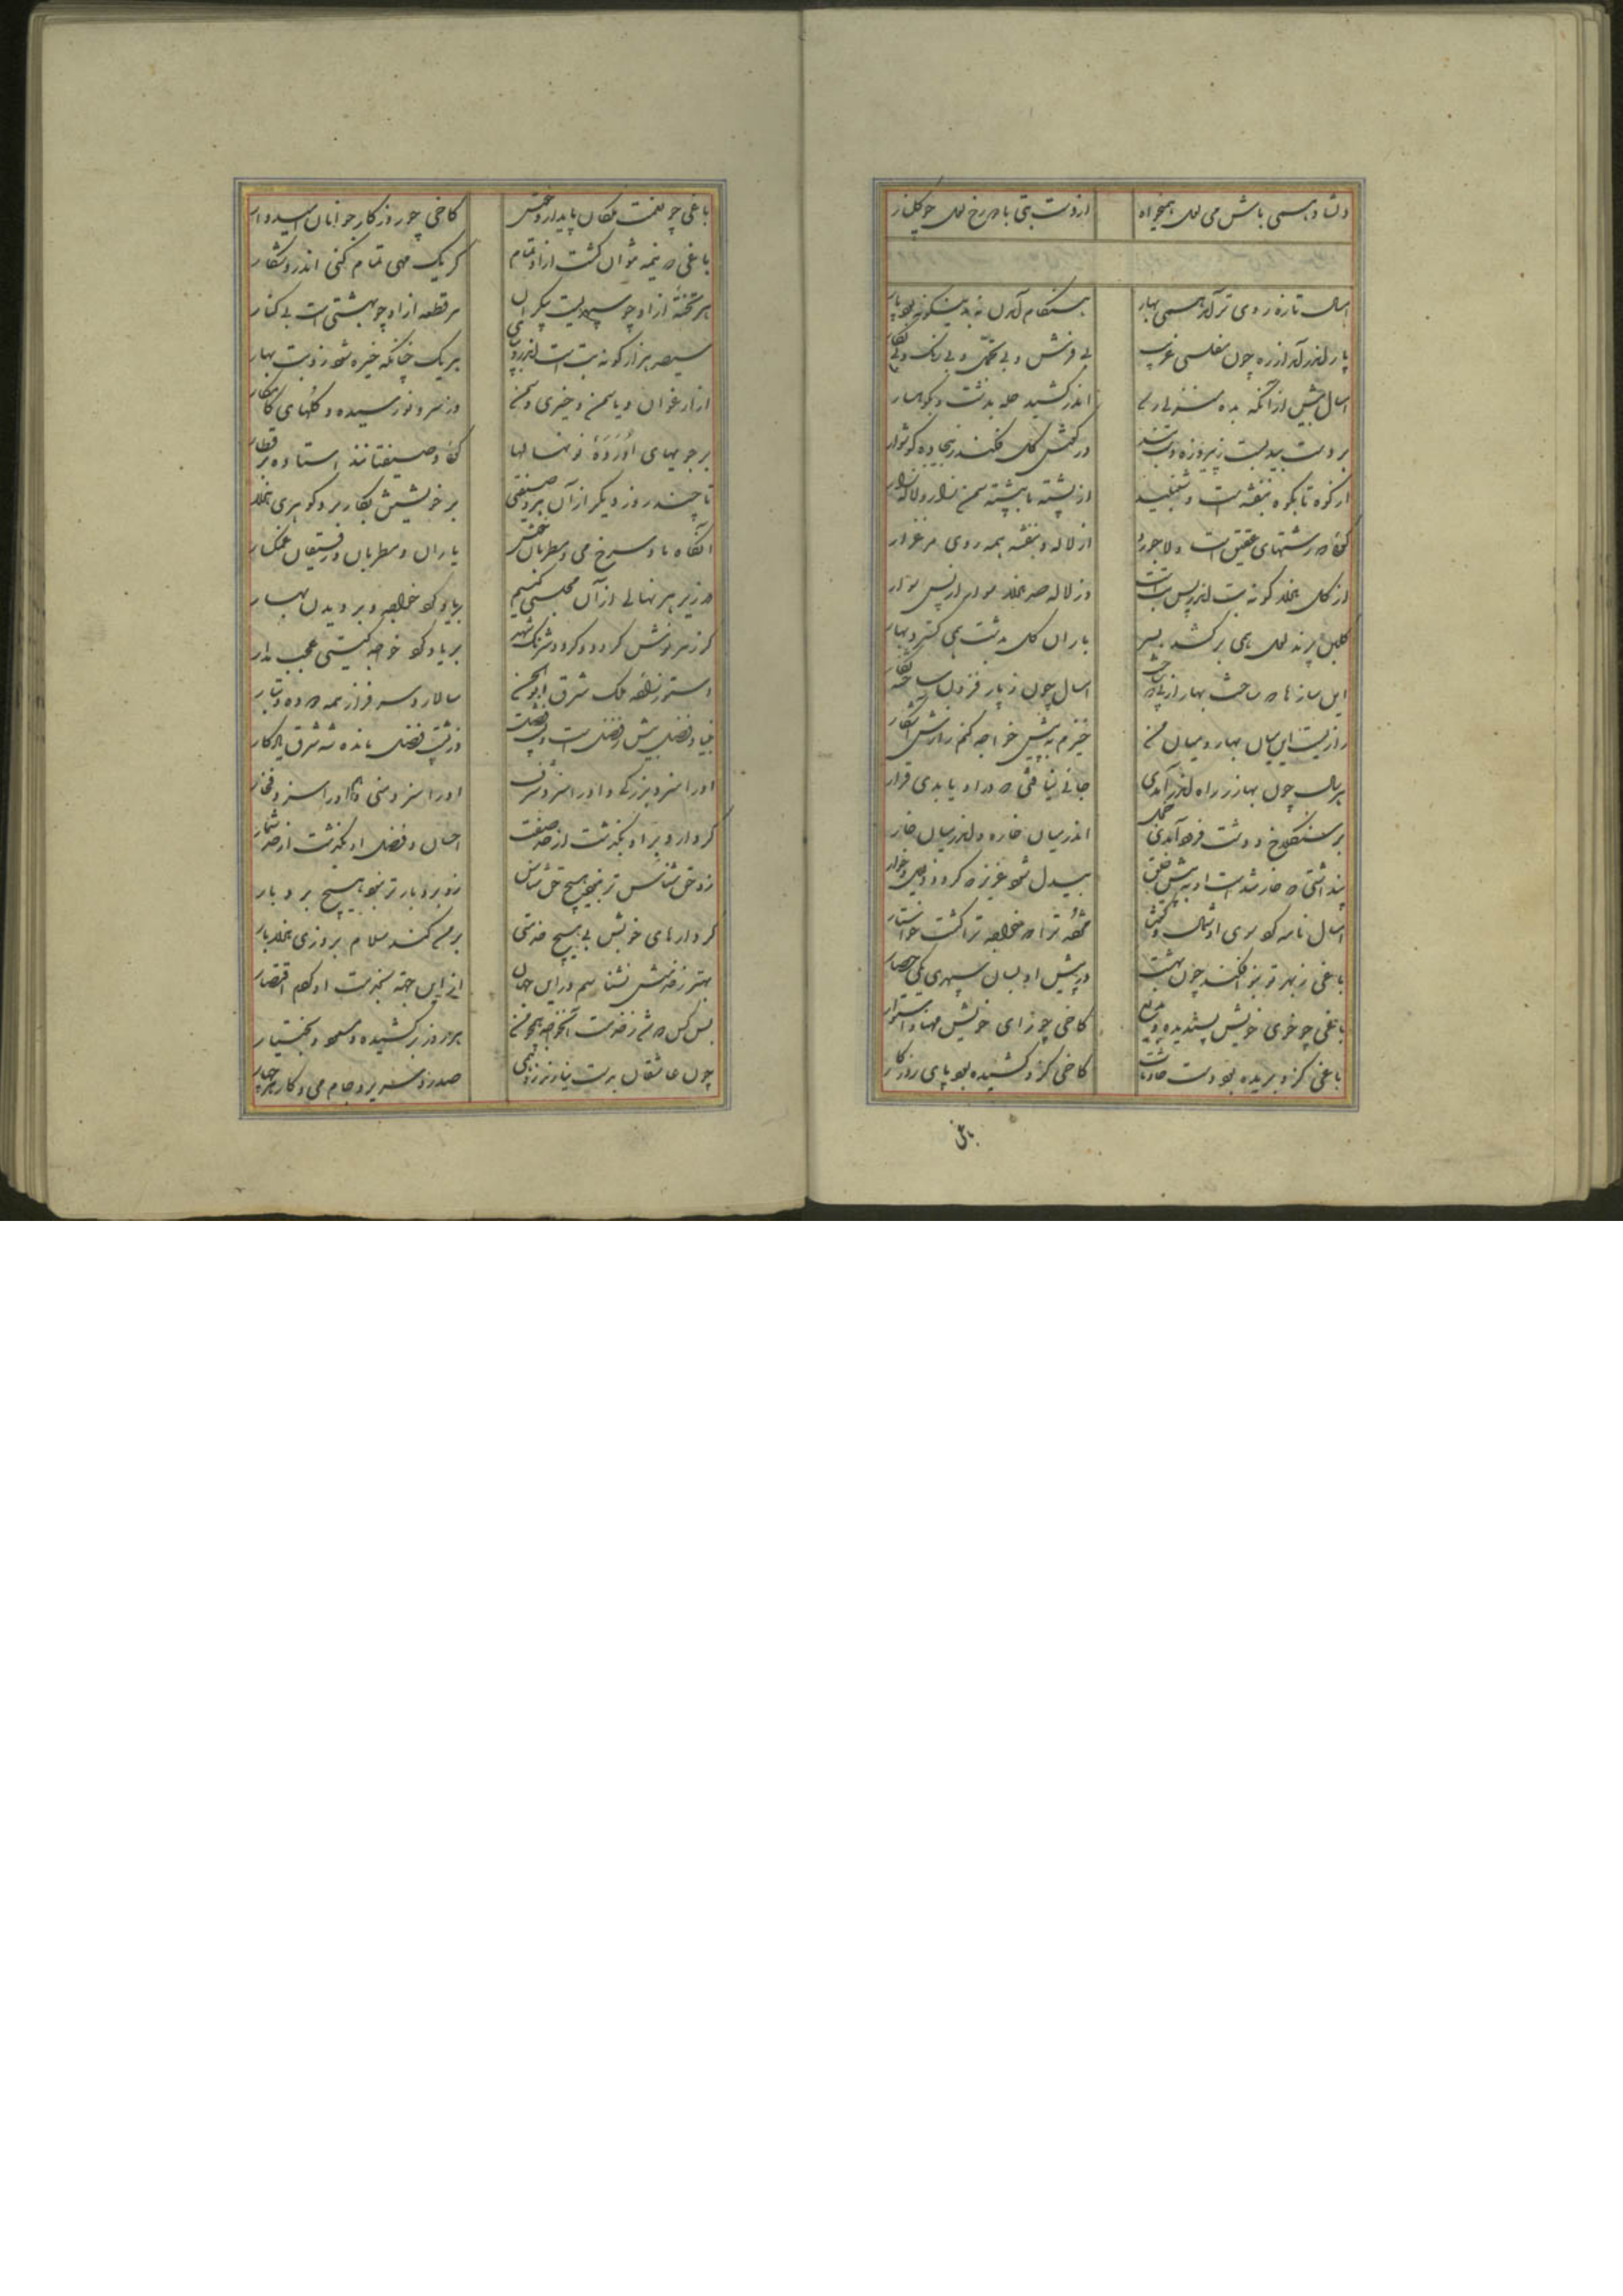 دلشاد همی باش می لعل همیخواه از دست بتی با دو رخ لعل چو گلنار
امسال تازه روی تر آمد همی بهار هنگام آمدن نه بدینگونه بود پار
پار اندر آمد از ره چون مفلسی غریب بی فرش و بی تجمل و بی رنگ و بی نگار
امسال پیش از آنکه بده منزلی رسد اندر کشید حله بدشت و بکوهسار
بر دست بید بست ز پیروزه دست بند در گوش گل فکند ز بیجاده گوشوار
از کوه تا بکوه بنفشه است و شنبلید از پشته تا بپشته سمن زار و لاله زار
گوئی که رشتهای عقیق است و لاجورد از لاله و بنفشه همه روی مرغزار
از گل هزار گونه بت اندر پس بت است وز لاله صد هزار سوار از پس سوار
گلبن پرند لعل همی برکشد بسر باران گل بدشت همی گسترد بهار
این سازها که ساخت بهار از پی که ساخت امسال چون ز پار فزون ساخته نگار
رازیست این میان بهار و میان من خیزم به پیش خواجه کنم رازش آشکار
هر سال چون بهار ز راه اندر آمدی جائی نیافتی که در او یابدی قرار
بر سنگلاخ و دشت فرود آمدی خجل اندر میان خاره و اندر میان خار
پنداشتی که خار شدست او به پیش خلق بیدل شود عزیز که گردد ذلیل و خوار
امسال نامه کرد سوی او شمال و گفت مژده ترا که خواجه ترا گشت خواستار
باغی ز بهر تو بنو افکند چون بهشت در پیش او بسان سپهری یکی حصار
باغی چو خوی خویش پسندیده و بدیع کاخی چو رای خویش مهنا و استوار
باغی کزو بریده بود دست حادثات کاخی کزو کشیده بود پای روزگار
باغی
باغی چو نعمت ملکان پایدار و خوش کاخی چو روزگار جوانان امیدوار
باغی که نیمه نتوان گشت از او تمام گر یک مهی تمام کنی اندرو شکار
هر تختهٔ از او چو سپهریست بیکران هر قطعه از او چو بهشتی است بی کنار
سیصد هزار گونه بت است اندرو بپای هر یک چنانکه خیره شود زو بت بهار
از ارغوان و یاسمن و خیری و سمن وز سرو نورسیده و گلهای کامکار
بر جویهای او رده رده نونهالها گوئی وصیفتانند استاده بر قطار
تا چند روز دیگر از آن هر وصیفتی بر خویشتن بکار برد گوهری هزار
آنگاه ما و سرخ می و مطربان خوش یاران و مطربان و رفیقان غمگسار
در زیر هر نهالی از آن مجلسی کنیم بر یاد کرد خواجه و بر دیدن بهار
گر زهر نوش گردد و گردد شرنگ شهد بر یاد کرد خواجه گیتی عجب مدار
دستور زاده ملک شرق ابوالحسن سالار و سرفراز همه دوده و تبار
بنیاد فضل پیش و فضل است و پشت فضل وز پشت فضل مانده شه شرق یادگار
او را سزد بزرگی و او را سزد شرف او را سزد منی و هم او را سزد فخار
کردار و بر او بگذشت از حد صفت احسان و فضل او بگذشت از حد شمار
زو حق شناس تر نبود هیچ حق شناس زو بردبار تر نبود هیچ بردبار
کردارهای خویش بی هیچ خدمتی بر من کند سلام بروزی هزار بار
بهتر ز خدمتش نشناسم در این جهان اینی این جهت بخدمت او کردم اقتصار
بس کس که من ز خدمت آن خواجه همچو من بهروز برکشیده و مسعود و بختیار
چون عاشقان بدست نیارند زو همی صدر و سریر و جام می و کار هر چهار